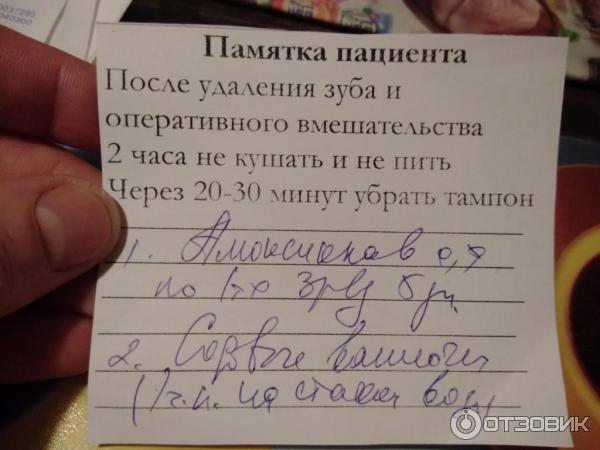 0037295
040300
Памятка пациента
После удаления зуба и
оперативного вмешательства
2 часа не кушать и не пить
Через 20-30 минут убрать тампон
1. Амоксиклав
по 1т х 3р/д 5 дн.
2. Содовые ванночки
(1 ч.л. на стакан воды)
ОТЗОВИК